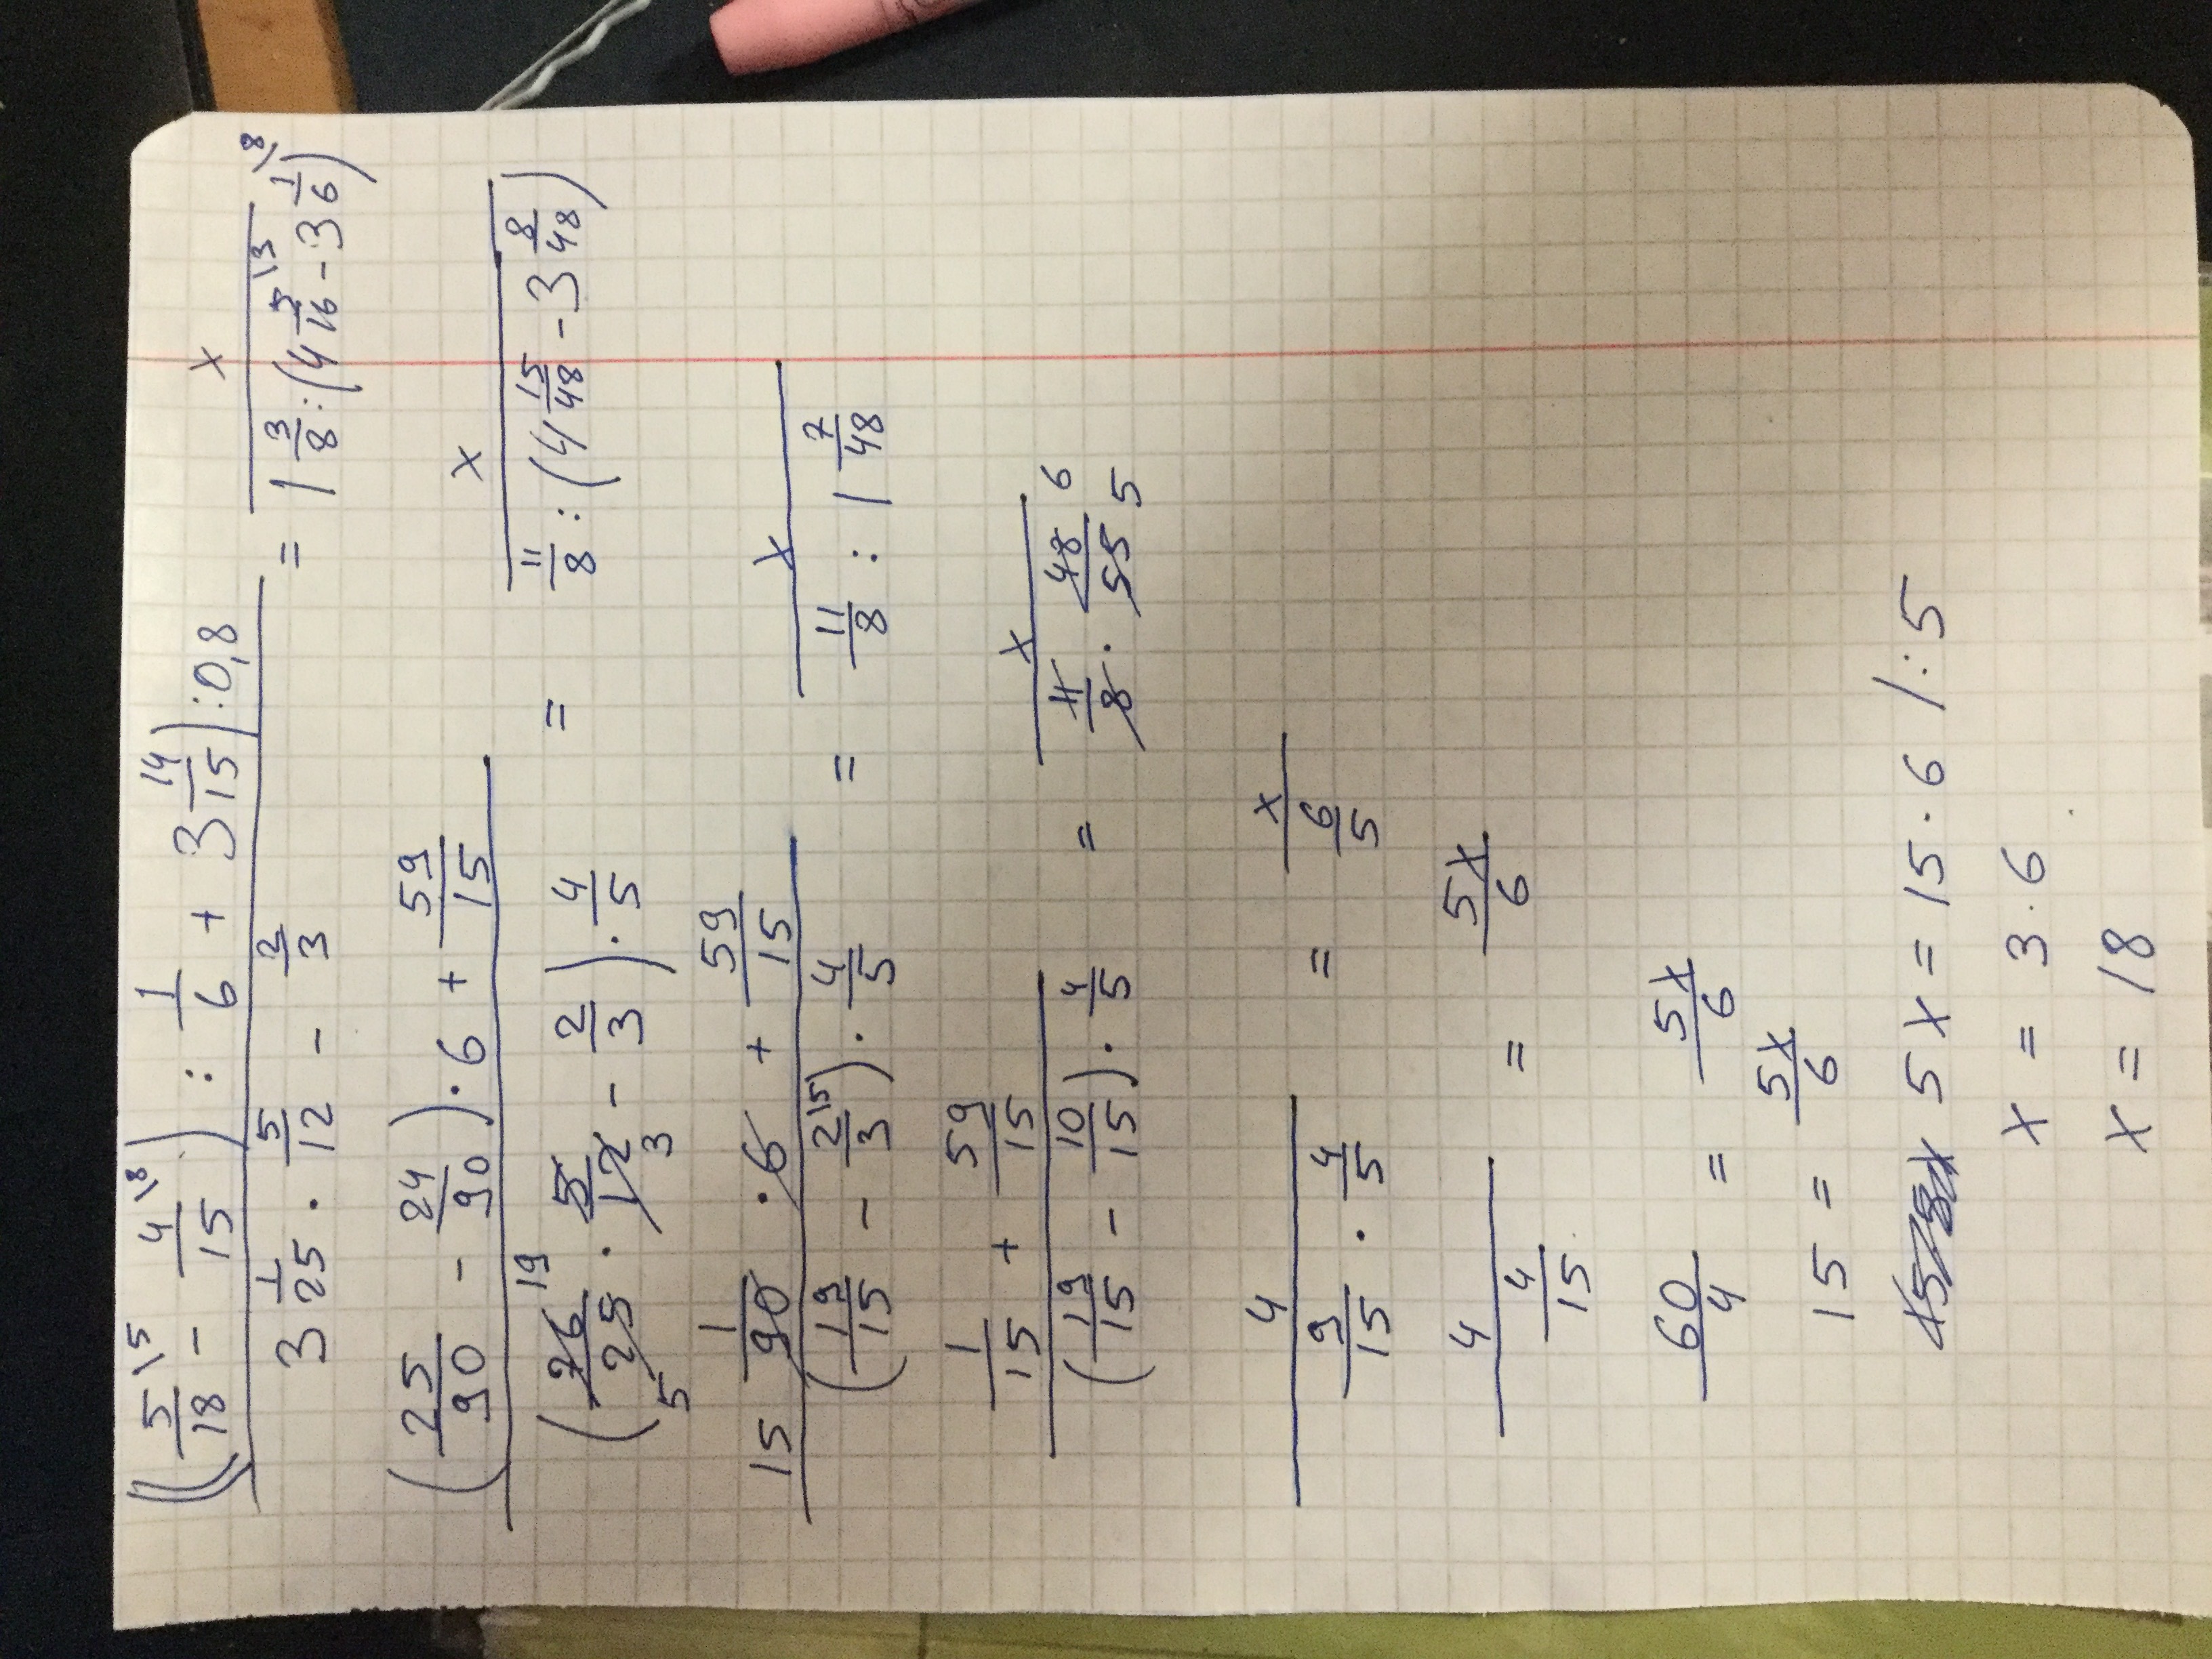 ((5/18 \5 - 4/15 \6) : 1/6 + 3 14/15) : 0,8 / 3 1/25 · 5/12 - 2/3 = x / 1 3/8 : (4 5/16 \3 - 3 1/6 \8)
(25/90 - 24/90) · 6 + 59/15 / (76/25 · 5/12 - 2/3) · 4/5 = x / 11/8 : (4 15/48 - 3 8/48)
19
5 3
1/90 · 6 + 59/15 / (19/15 - 2/3 \5) · 4/5 = x / 11/8 : 1 7/48
15
1/15 + 59/15 / (19/15 - 10/15) · 4/5 = x / 11/8 · 48/55
6
5
4 / 9/15 · 4/5 = x / 6/5
4 / 4/15 = 5x/6
60/4 = 5x/6
15 = 5x/6
5x = 15 · 6 /:5
x = 3 · 6
x = 18